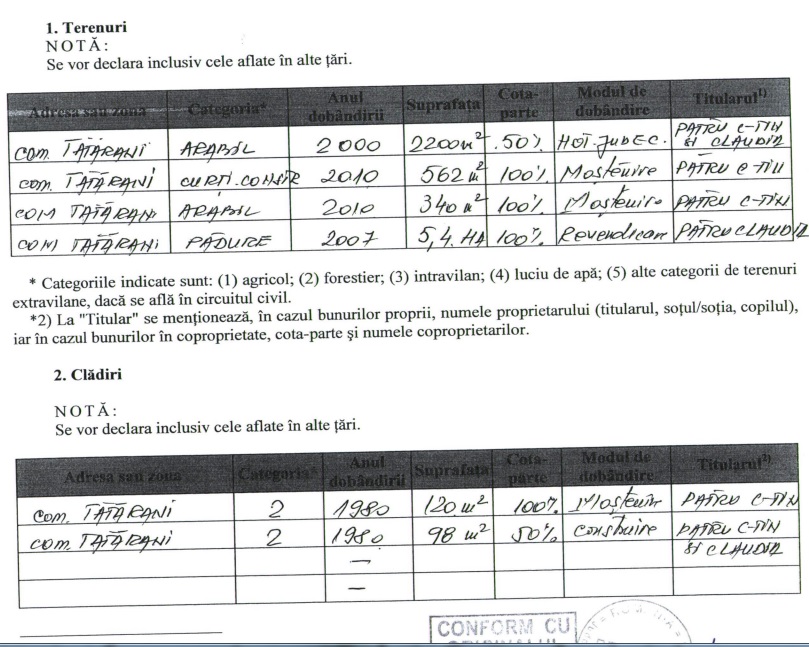 1. Terenuri
NOTĂ:
Se vor declara inclusiv cele aflate în alte țări.
Adresa sau zona Categoria* Anul dobândirii Suprafața Cota-parte Modul de dobândire Titularul¹⁾
COM. TĂTĂRANI ARABIL 2000 2200 m² 50% HOT. JUDEC. PATRU C-TIN ȘI CLAUDIA
COM. TĂTĂRANI CURTI. CONSTR 2010 562 m² 100% Moștenire PATRU C-TIN
COM TĂTĂRANI ARABIL 2010 340 m² 100% Moștenire PATRU C-TIN
COM TĂTĂRANI PĂDURE 2007 5,4. HA 100% Revendicare PATRU CLAUDIA
* Categoriile indicate sunt: (1) agricol; (2) forestier; (3) intravilan; (4) luciu de apă; (5) alte categorii de terenuri
extravilane, dacă se află în circuitul civil.
*2) La "Titular" se menționează, în cazul bunurilor proprii, numele proprietarului (titularul, soțul/soția, copilul),
iar în cazul bunurilor în coproprietate, cota-parte și numele coproprietarilor.
2. Clădiri
NOTĂ:
Se vor declara inclusiv cele aflate în alte țări.
Adresa sau zona Categoria* Anul dobândirii Suprafața Cota-parte Modul de dobândire Titularul²⁾
COM. TĂTĂRANI 2 1980 120 m² 100% Moștenire PATRU C-TIN
COM. TĂTĂRANI 2 1980 98 m² 50% Construire PATRU C-TIN ȘI CLAUDIA
—
—
CONFORM CU